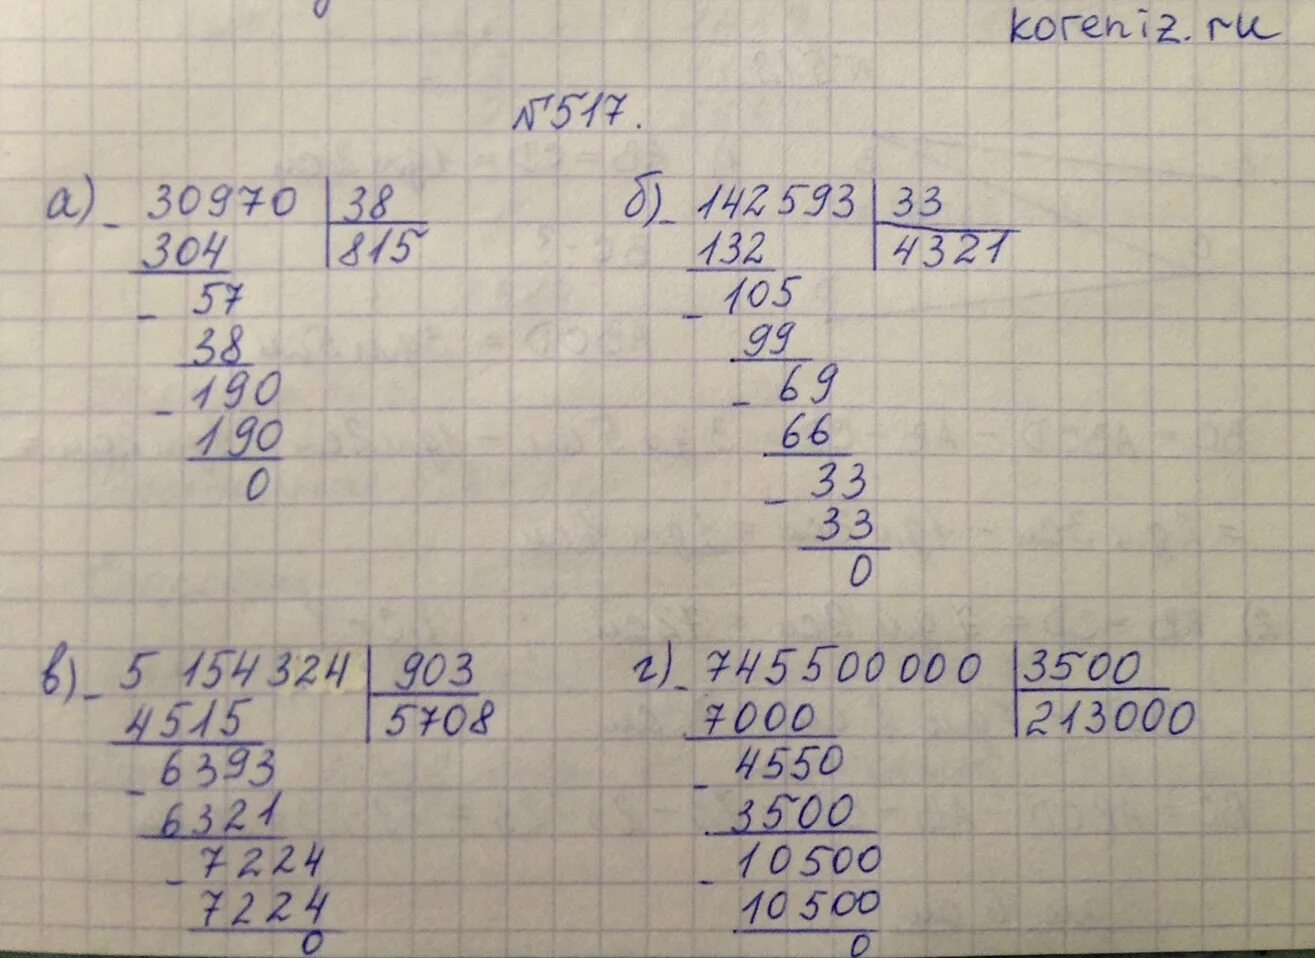 koreniz.ru
№517.
а) - 30970 | 38
304 | 815
- 57
38
- 190
190
0
б) - 142593 | 33
132 | 4321
- 105
99
- 69
66
- 33
33
0
в) - 5 154 324 | 903
4515 | 5708
- 6393
6321
- 7224
7224
0
г) - 745500 000 | 3500
7000 | 213000
- 4550
3500
- 10500
10500
0